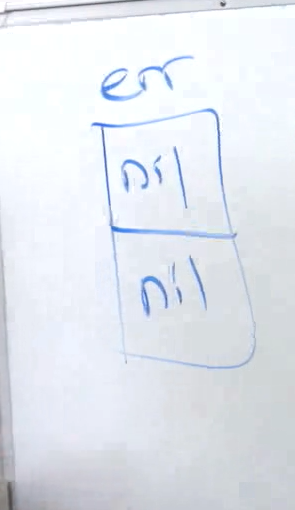 err
nil
nil